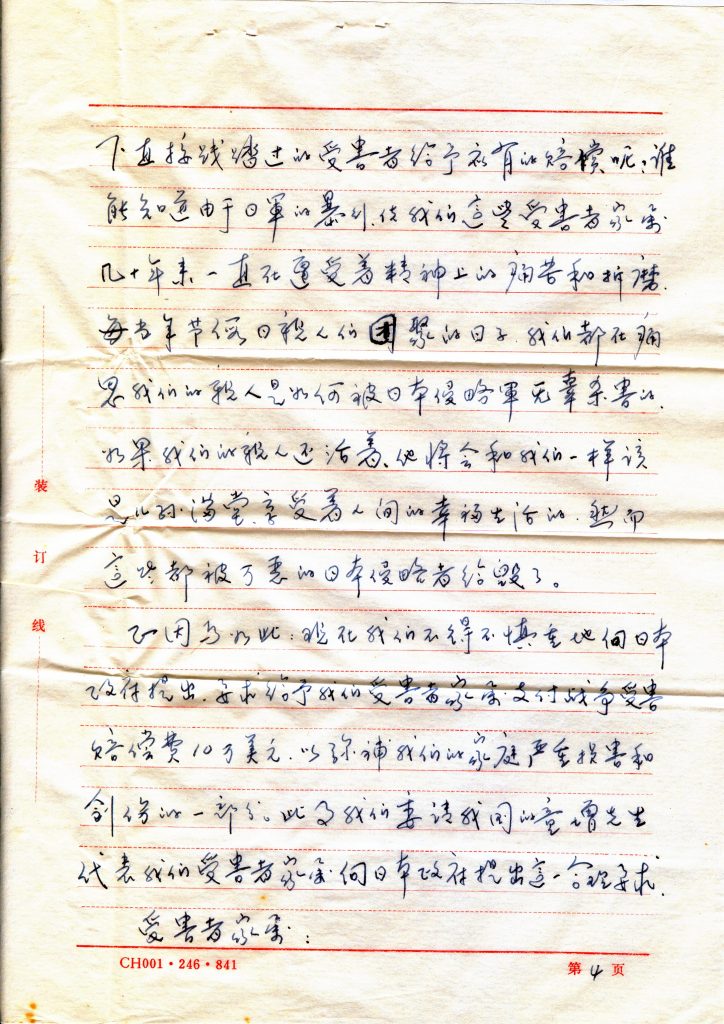 下直接践踏过的受害者给予应有的赔偿呢?谁
能知道由于日軍的暴行,使我们這些受害者家属
几十年来一直在遭受着精神上的痛苦和折磨.
每当年节假日親人们团聚的日子.我们都在痛
思我们的親人是如何被日本侵略軍无辜杀害的.
如果我们的親人还活着、他将会和我们一样该
是儿孙满堂,享受着人间的幸福生活的.然而
這些都被万恶的日本侵略者给毁了。
正因为如此:现在我们不得不慎重地向日本
政府提出.要求给予我们受害者家属支付战争受害
赔偿费10万美元.以弥補我们的家庭严重损害和
创伤的一部分。此及我们委请我国的童增先生
代表我们受害者家属向日本政府提出這一合理要求.
受害者家属:
装
订
线
CH001·246·841
第4页